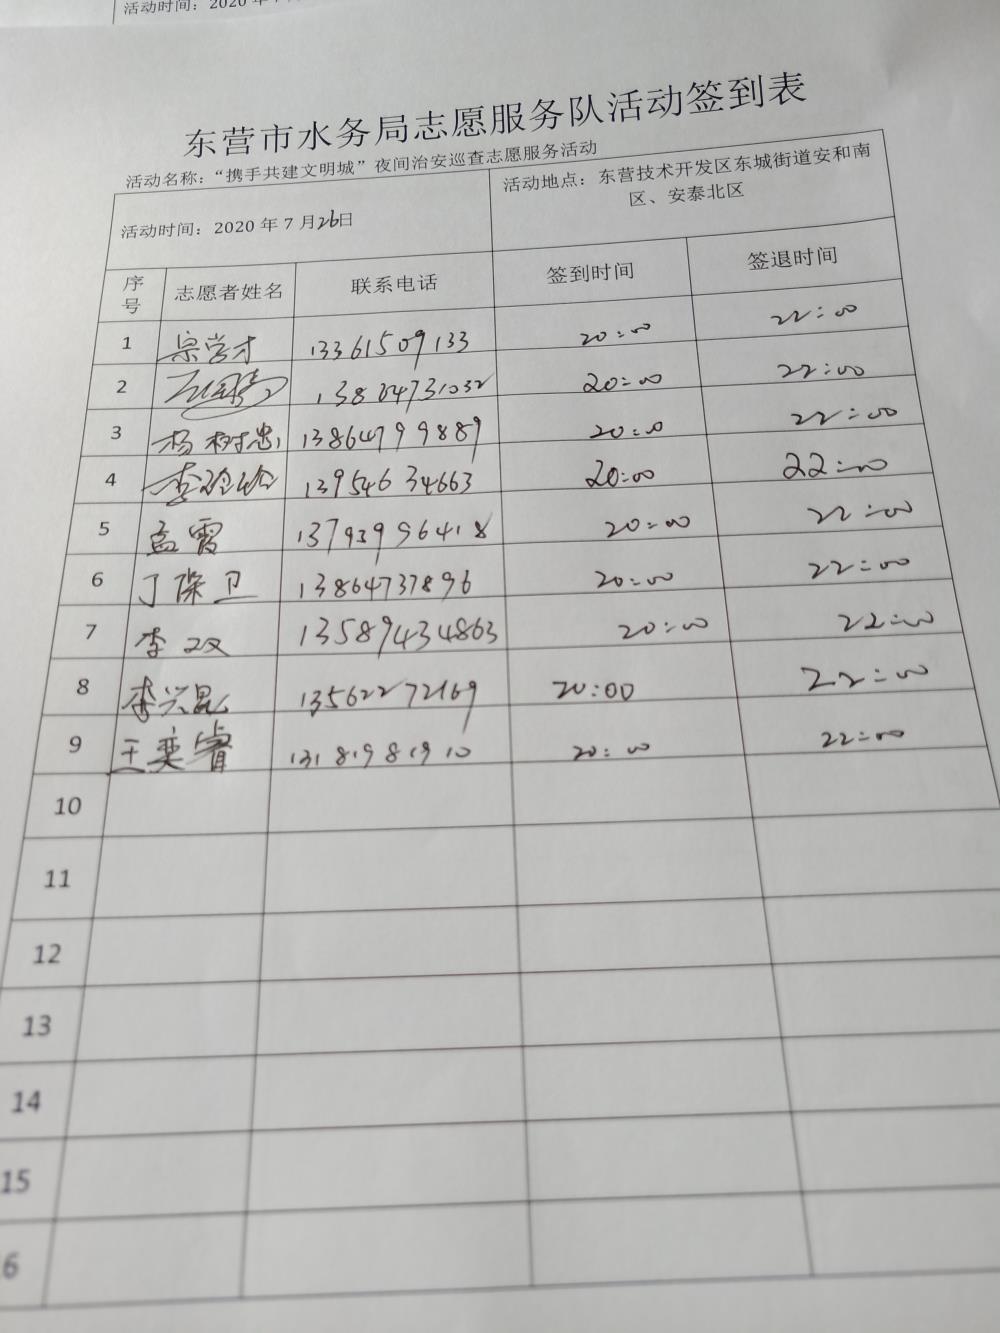 活动时间：2020 年
东营市水务局志愿服务队活动签到表
活动名称：“携手共建文明城”夜间治安巡查志愿服务活动
活动时间：2020 年 7 月26日 活动地点：东营技术开发区东城街道安和南区、安泰北区
序号 志愿者姓名 联系电话 签到时间 签退时间
1 宗学才 13361509133 20:00 22:00
2 13864731032 20:00 22:00
3 杨树忠 13864799889 20:00 22:00
4 李 13954634663 20:00 22:00
5 孟霞 13793996418 20:00 22:00
6 丁保卫 13864737896 20:00 22:00
7 李双 13589434863 20:00 22:00
8 李兴昆 13562272169 20:00 22:00
9 王奕睿 13181981910 20:00 22:00
10
11
12
13
14
15
6